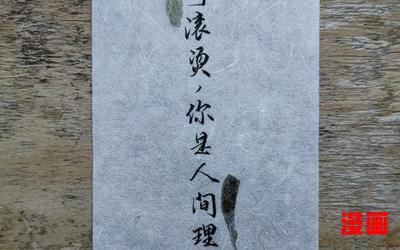 滚烫，你是人间理
漫画